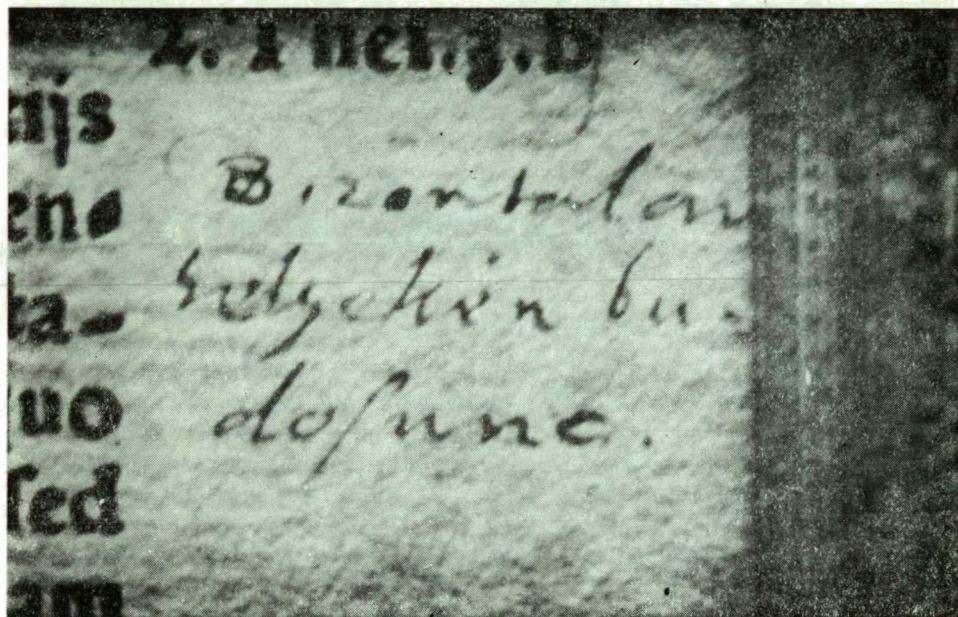 2. Theſ.3.b
ijs
en=
ta-
uo
ſed
am
Bizontalan
helyekén bu-
doſunc.